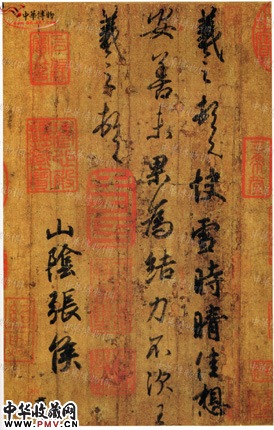 中华博物
羲之頓首快雪時晴佳想
安善未果為結力不次王
羲之頓首
山陰張侯
中华收藏网
www.PMV.cn